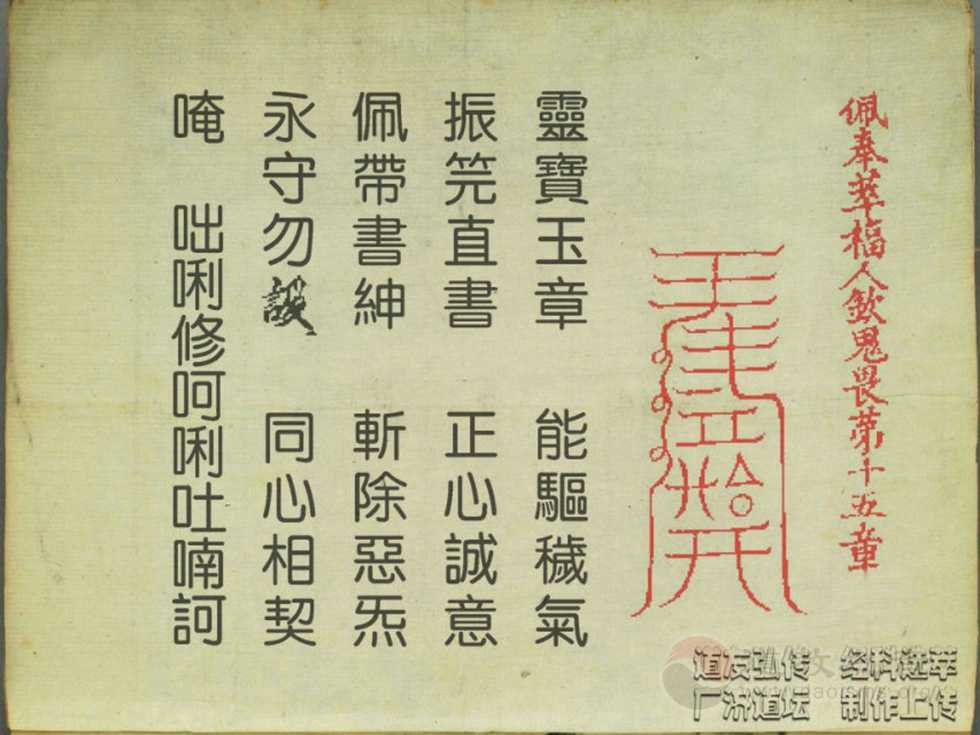 佩奉萃福人欽鬼畏第十五章
靈寶玉章 能驅穢氣
振笎直書 正心誠意
佩帶書紳 斬除惡炁
永守勿設 同心相契
唵 咄唎修呵唎吐喃訶
道友弘传 经科选萃
广济道坛 制作上传